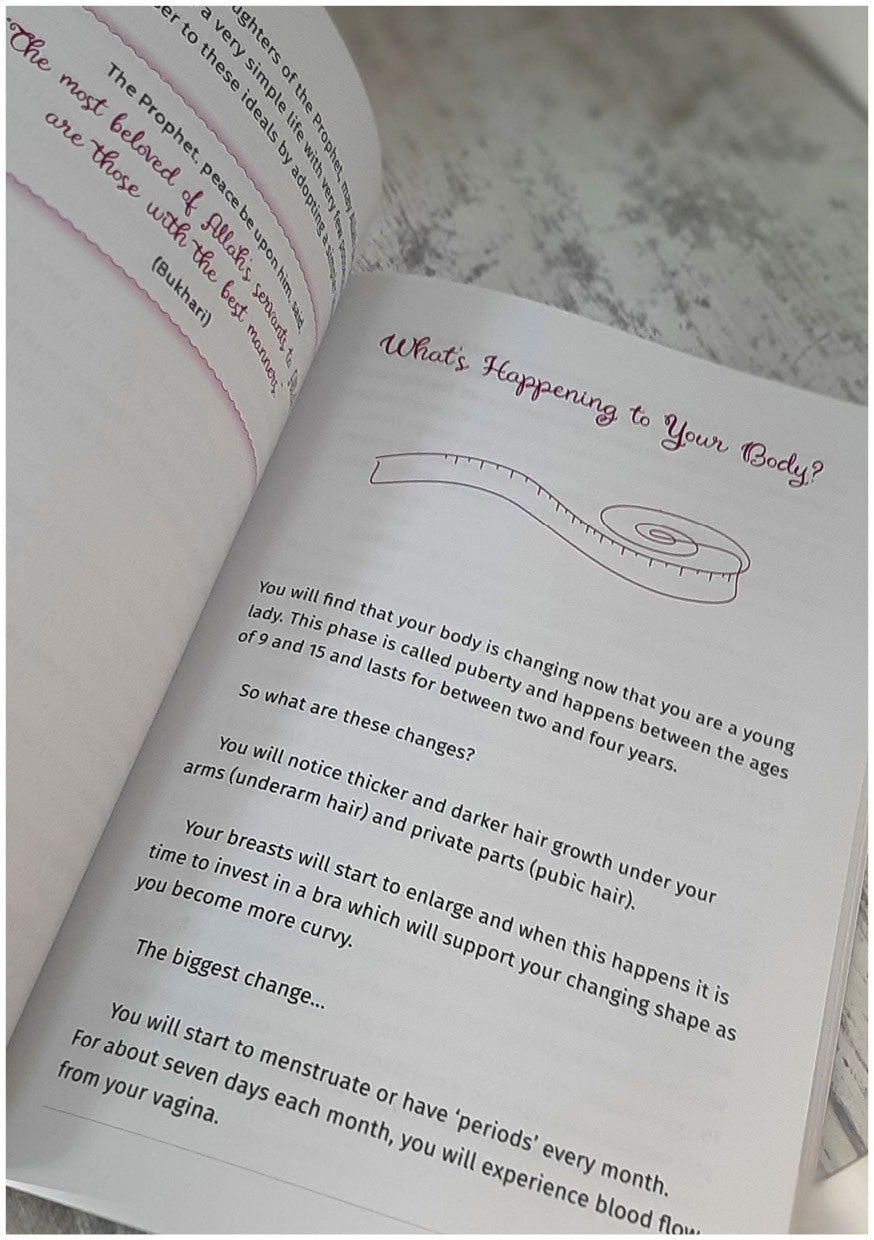 ughters of the Prophet, may
a very simple life with very few
er to these ideals by adopting a
The Prophet, peace be upon him, said
The most beloved of Allah's servants to
are those with the best manners.
(Bukhari)
What's Happening to Your Body?
You will find that your body is changing now that you are a young
lady. This phase is called puberty and happens between the ages
of 9 and 15 and lasts for between two and four years.
So what are these changes?
You will notice thicker and darker hair growth under your
arms (underarm hair) and private parts (pubic hair).
Your breasts will start to enlarge and when this happens it is
time to invest in a bra which will support your changing shape as
you become more curvy.
The biggest change...
You will start to menstruate or have ‘periods’ every month.
For about seven days each month, you will experience blood flow
from your vagina.